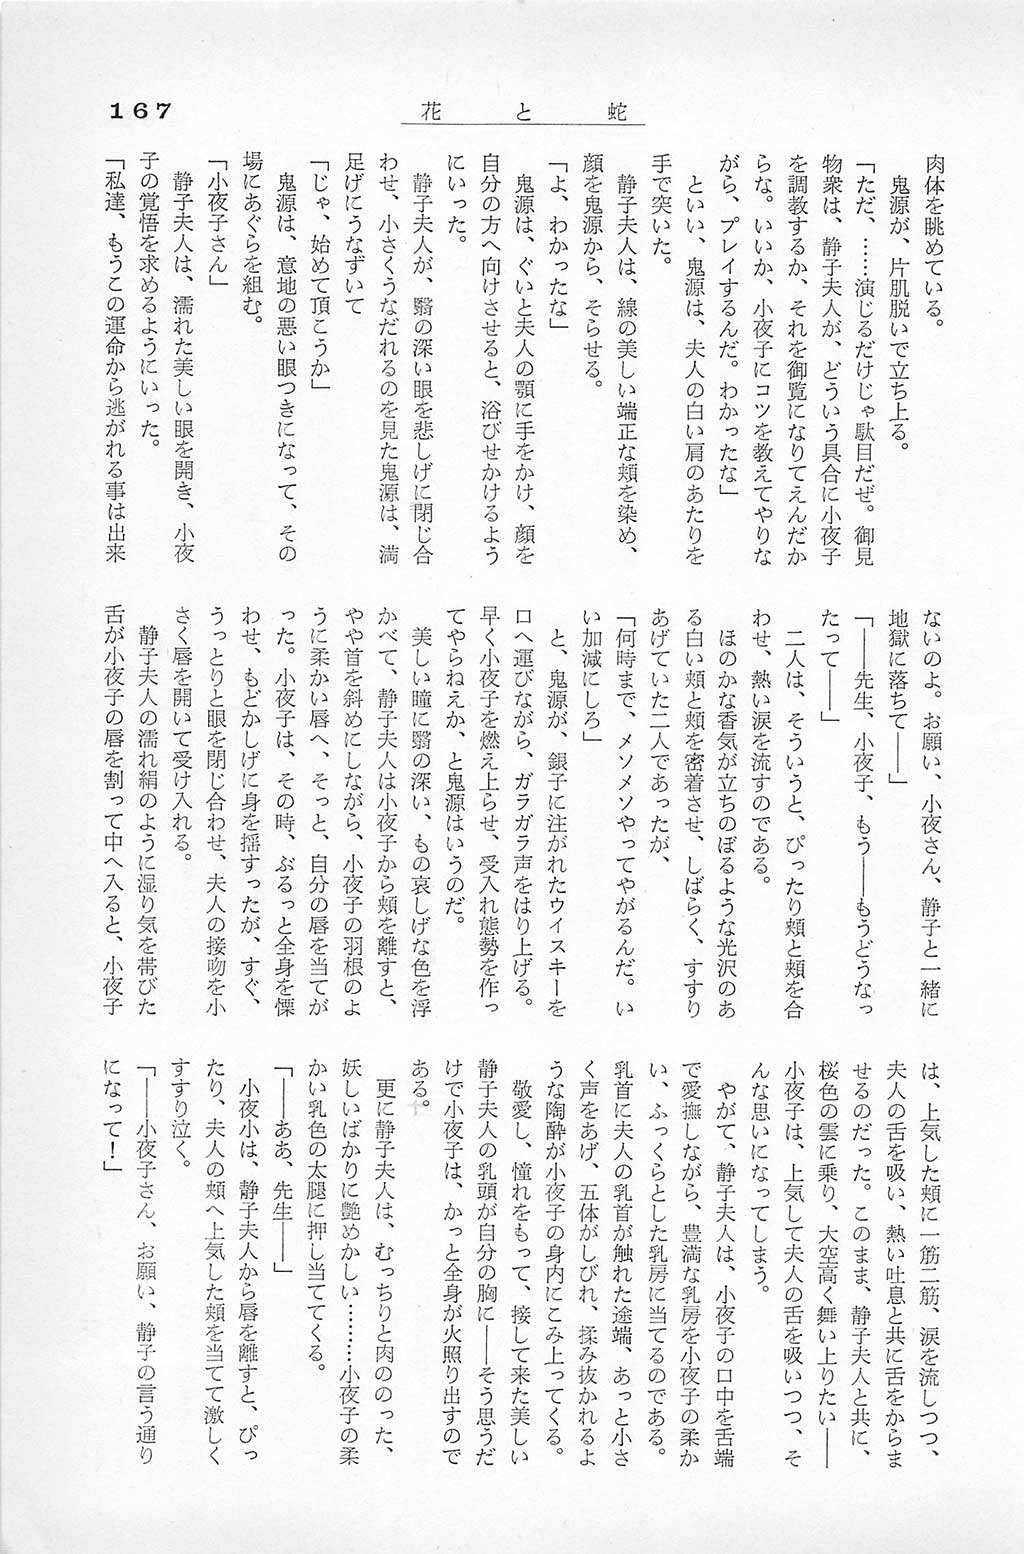 167
花と蛇
肉体を眺めている。
鬼源が、片肌脱いで立ち上る。
「ただ、……演じるだけじゃ駄目だぜ。御見
物衆は、静子夫人が、どういう具合に小夜子
を調教するか、それを御覧になりてえんだか
らな。いいか、小夜子にコツを教えてやりな
がら、プレイするんだ。わかったな」
といい、鬼源は、夫人の白い肩のあたりを
手で突いた。
静子夫人は、線の美しい端正な頬を染め、
顔を鬼源から、そらせる。
「よ、わかったな」
鬼源は、ぐいと夫人の顎に手をかけ、顔を
自分の方へ向けさせると、浴びせかけるよう
にいった。
静子夫人が、翳の深い眼を悲しげに閉じ合
わせ、小さくうなだれるのを見た鬼源は、満
足げにうなずいて
「じゃ、始めて頂こうか」
鬼源は、意地の悪い眼つきになって、その
場にあぐらを組む。
「小夜子さん」
静子夫人は、濡れた美しい眼を開き、小夜
子の覚悟を求めるようにいった。
「私達、もうこの運命から逃がれる事は出来
ないのよ。お願い、小夜さん、静子と一緒に
地獄に落ちて――」
「――先生、小夜子、もう――もうどうなっ
たって――」
二人は、そういうと、ぴったり頬と頬を合
わせ、熱い涙を流すのである。
ほのかな香気が立ちのぼるような光沢のあ
る白い頬と頬を密着させ、しばらく、すすり
あげていた二人であったが、
「何時まで、メソメソやってやがるんだ。い
い加減にしろ」
と、鬼源が、銀子に注がれたウイスキーを
口へ運びながら、ガラガラ声をはり上げる。
早く小夜子を燃え上らせ、受入れ態勢を作っ
てやらねえか、と鬼源はいうのだ。
美しい瞳に翳の深い、もの哀しげな色を浮
かべて、静子夫人は小夜子から頬を離すと、
やや首を斜めにしながら、小夜子の羽根のよ
うに柔かい唇へ、そっと、自分の唇を当てが
った。小夜子は、その時、ぶるっと全身を慄
わせ、もどかしげに身を揺すったが、すぐ、
うっとりと眼を閉じ合わせ、夫人の接吻を小
さく唇を開いて受け入れる。
静子夫人の濡れ絹のように湿り気を帯びた
舌が小夜子の唇を割って中へ入ると、小夜子
は、上気した頬に一筋二筋、涙を流しつつ、
夫人の舌を吸い、熱い吐息と共に舌をからま
せるのだった。このまま、静子夫人と共に、
桜色の雲に乗り、大空高く舞い上りたい――
小夜子は、上気して夫人の舌を吸いつつ、そ
んな思いになってしまう。
やがて、静子夫人は、小夜子の口中を舌端
で愛撫しながら、豊満な乳房を小夜子の柔か
い、ふっくらとした乳房に当てるのである。
乳首に夫人の乳首が触れた途端、あっと小さ
く声をあげ、五体がしびれ、揉み抜かれるよ
うな陶酔が小夜子の身内にこみ上ってくる。
敬愛し、憧れをもって、接して来た美しい
静子夫人の乳頭が自分の胸に――そう思うだ
けで小夜子は、かっと全身が火照り出すので
ある。
更に静子夫人は、むっちりと肉ののった、
妖しいばかりに艶めかしい………小夜子の柔
かい乳色の太腿に押し当ててくる。
「――ああ、先生――」
小夜小は、静子夫人から唇を離すと、ぴっ
たり、夫人の頬へ上気した頬を当てて激しく
すすり泣く。
「――小夜子さん、お願い、静子の言う通り
になって！」